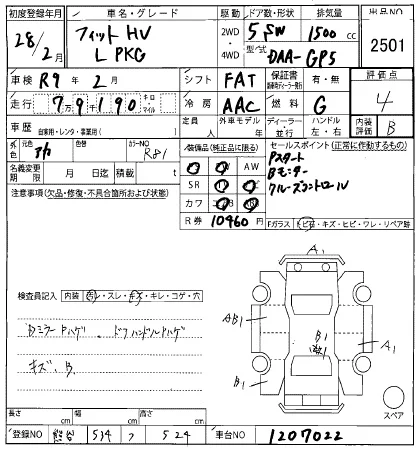 初度登録年月 車名・グレード 駆動 ドア数・形状 排気量 出品NO
28/2月 フィット HV 2WD 5 SW 1500 cc 2501
L PKG 4WD 型/式 DAA-GP5
車検 R9年2月 シフト FAT 保証書 有・無 評価点
走行 79190 キロ マイル 冷房 AAC 燃料 G 4
車歴 自家用・レンタ・事業用( ) 定員 人 外車モデル 年 ディーラー 並行 ハンドル 左・右 内装評価 B
外色 元色 アカ 色替 カラーNO R81 装備品(純正品に限る) セールスポイント(正常に作動するもの)
AW Pスタート
名義変更 月 日迄 積載 t SR Bモニター
カワ クルーズコントロール
注意事項(欠品・修復・不具合箇所および状態) R券 10460円
Fガラス トビ石・キズ・ヒビ・ワレ・リペア跡
A1
AB1
B1
A1
B1
検査員記入 内装 汚レ・スレ・キズ・キレ・コゲ・穴
Dミラー Pハゲ、ドアハンドルPハゲ
キズ、B.
スペア
長さ cm 幅 cm 高さ cm
登録NO 熊谷 534 フ 524 車台NO 1207022